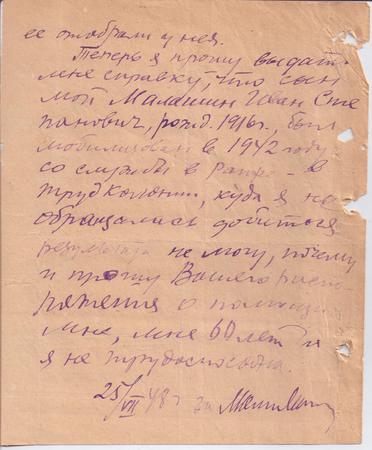 ее отобрали у нея.
Теперь я прошу выдать
мне справку, что сын
мой Малашин Иван Сте
панович, рожд. 1916 г., был
мобилизован в 1942 году
со службы в - в
трудколонию, куда я не
обращалась добиться
результата не могу, почему
и прошу Вашего распо
ряжения о помощи
мне, мне 60 лет и
я не трудоспособна.
25/VII 48 г за